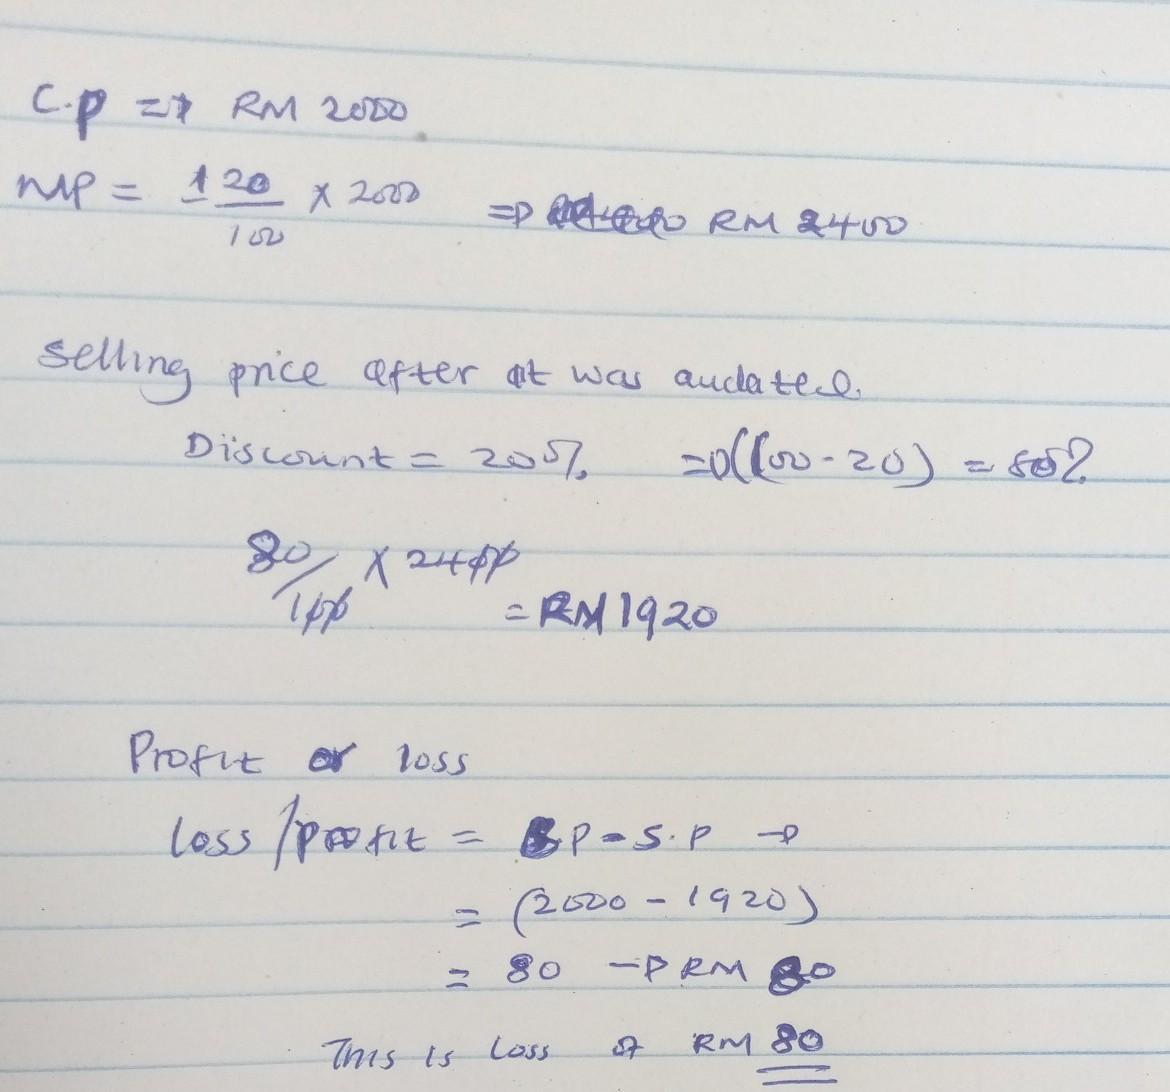 C.P => RM 2000
MP = 120/100 x 2000 => RM 2400
Selling price after it was audated.
Discount = 20%  => (100-20) = 80%
80/100 x 2400
= RM 1920
Profit or loss
loss/profit = P - S.P →
= (2000 - 1920)
= 80 → RM 80
This is loss of RM 80